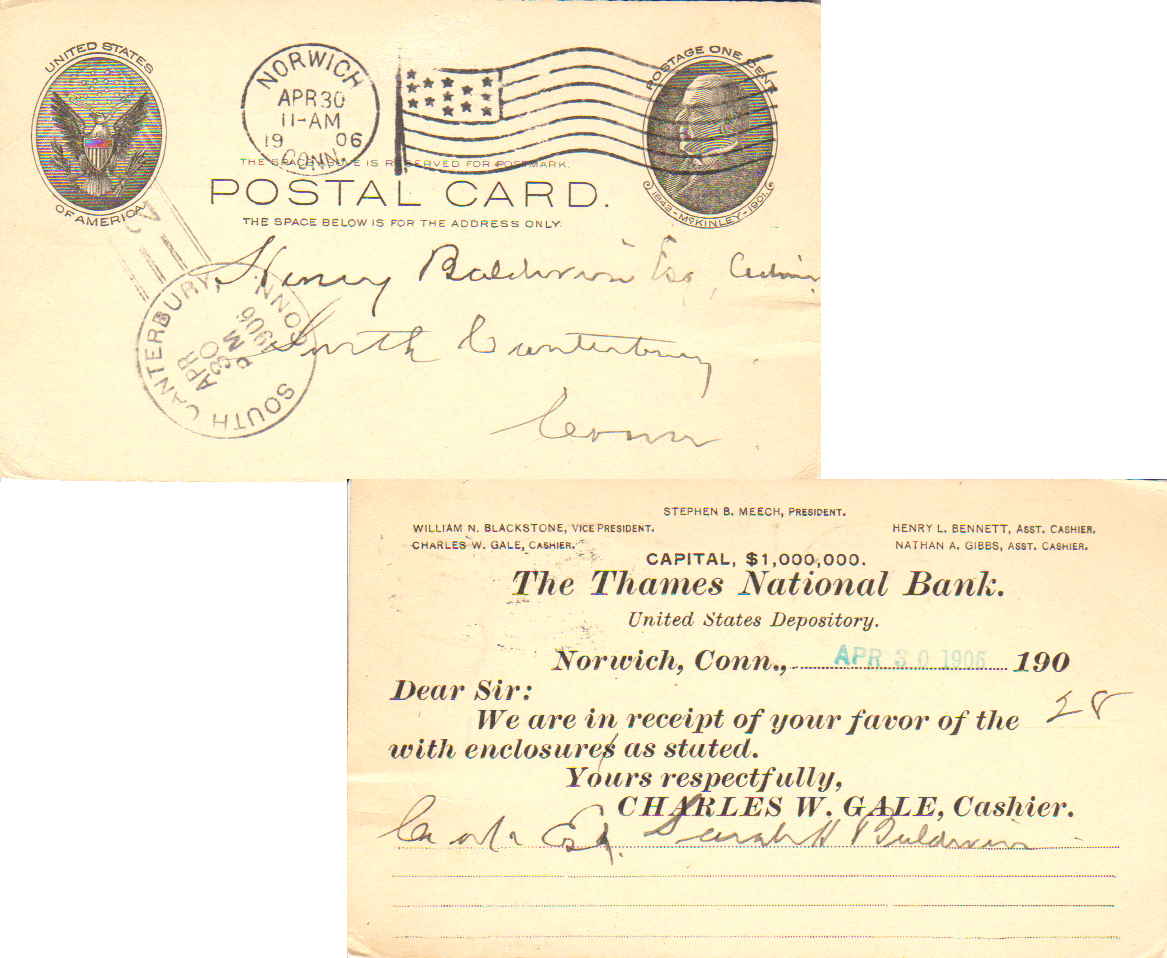 UNITED STATES
OF AMERICA
NORWICH
APR 30
11-AM
19 06
CONN.
POSTAGE ONE CENT
1843-McKINLEY-1901
THE SPACE ABOVE IS RESERVED FOR POSTMARK.
POSTAL CARD.
THE SPACE BELOW IS FOR THE ADDRESS ONLY.
Henry Baldwin Esq,
South Canterbury
Conn
SOUTH CANTERBURY, CONN.
APR
30
PM
1906
STEPHEN B. MEECH, PRESIDENT.
WILLIAM N. BLACKSTONE, VICE PRESIDENT. HENRY L. BENNETT, ASST. CASHIER.
CHARLES W. GALE, CASHIER. NATHAN A. GIBBS, ASST. CASHIER.
CAPITAL, $1,000,000.
The Thames National Bank.
United States Depository.
Norwich, Conn., APR 30 1906 190
Dear Sir:
We are in receipt of your favor of the 28
with enclosures as stated.
Yours respectfully,
CHARLES W. GALE, Cashier.
Sarah H Baldwin